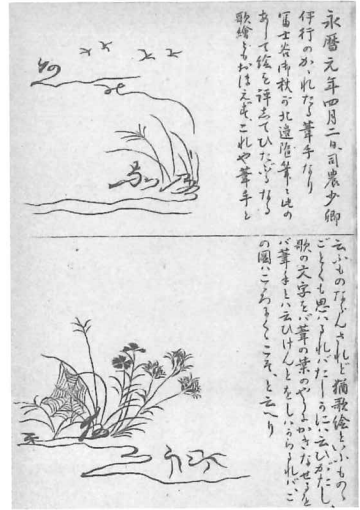 永暦元年四月二日、司農少卿
伊行のかゝれたる葦手なり
冨士谷御杖が北邊随筆に此の
あして絵を評志てひたふるなる
歌繪ともおほえず、これや葦手と
云ふものならんされど猶歌絵といふものゝ
ごとくも思ハるれバたしかに云ひがたし、
歌の文字をバ葦の葉のやうにかきなせるを
バ葦手とハ云ひけんとをしハからるれバこ
の圖ハこそ、と云へり